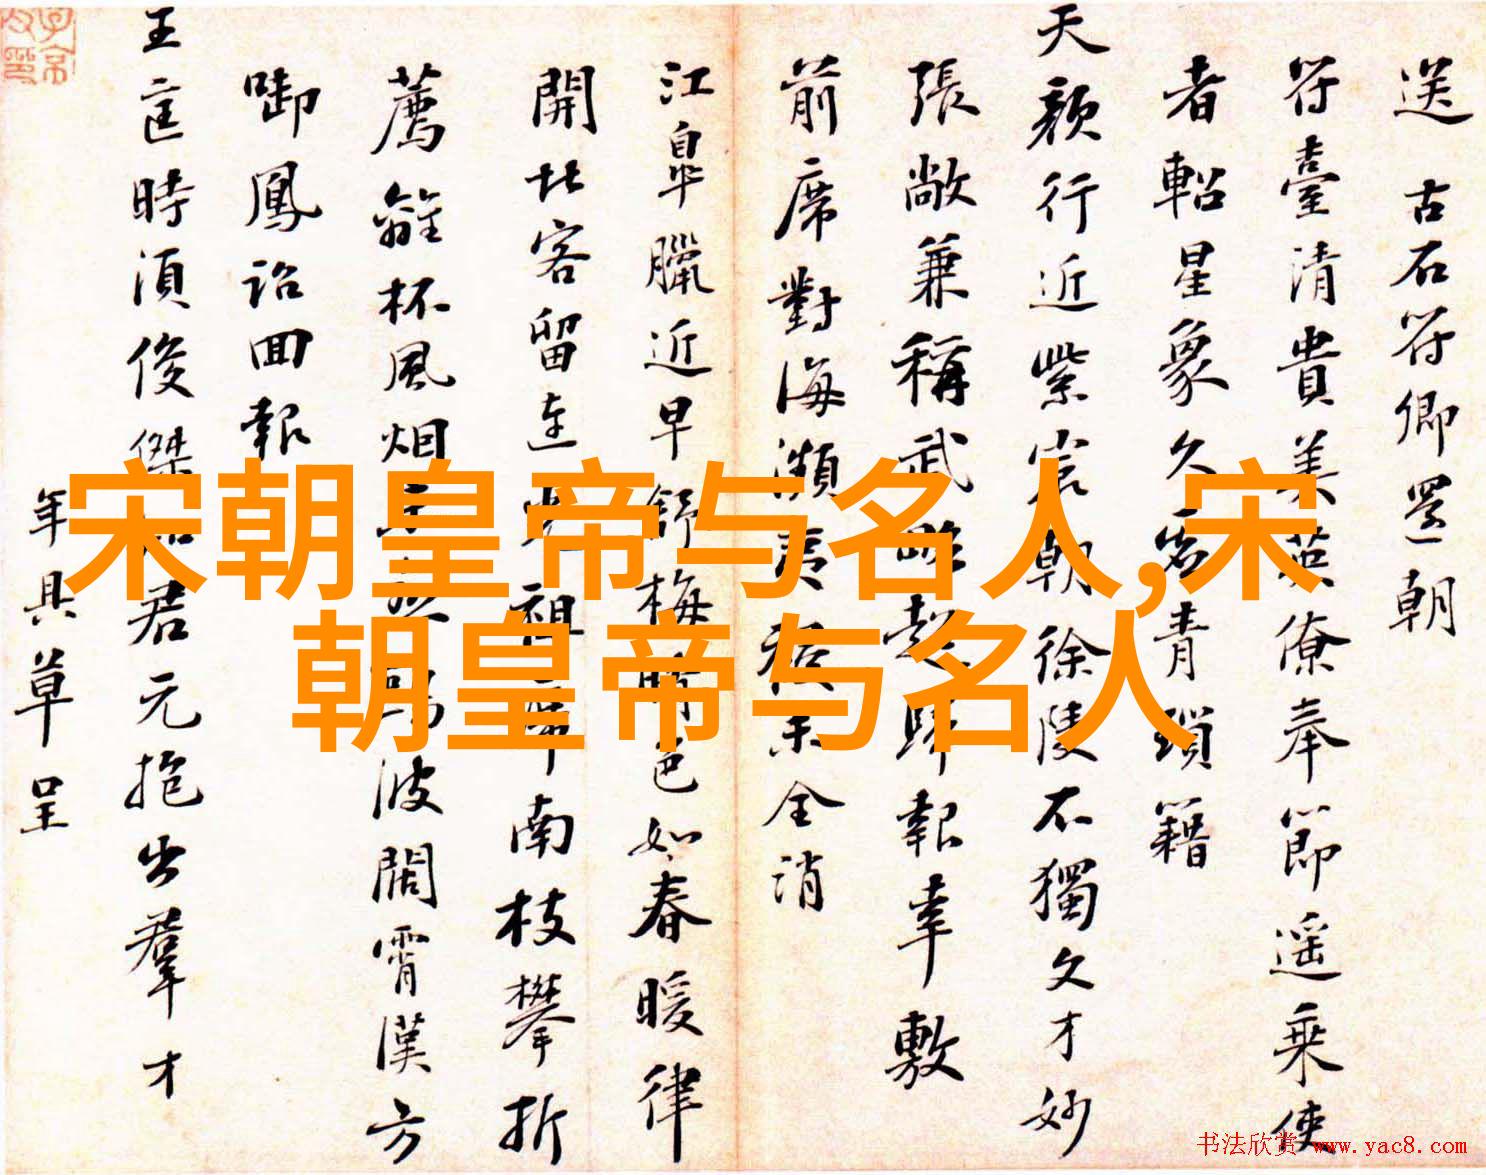 送古石符卿還朝
符臺清貴美英僚奉節遥乘使
者軺星象久名青瑣籍
天顔行近紫宸朝徐陵不獨文才妙
張敞兼稱武略超歸報聿敷
前席對海瀕夷全消
江皐臘近早舒梅晴色如春暖律
開北客留連祖席南枝攀折
薦離杯風烟波闊霄漢方
啣鳳詔回報
王定時須俊傑君元抱出羣才
年具草呈
宋朝皇帝与名人,宋
朝皇帝与名人
书法欣赏 www.yac8.com